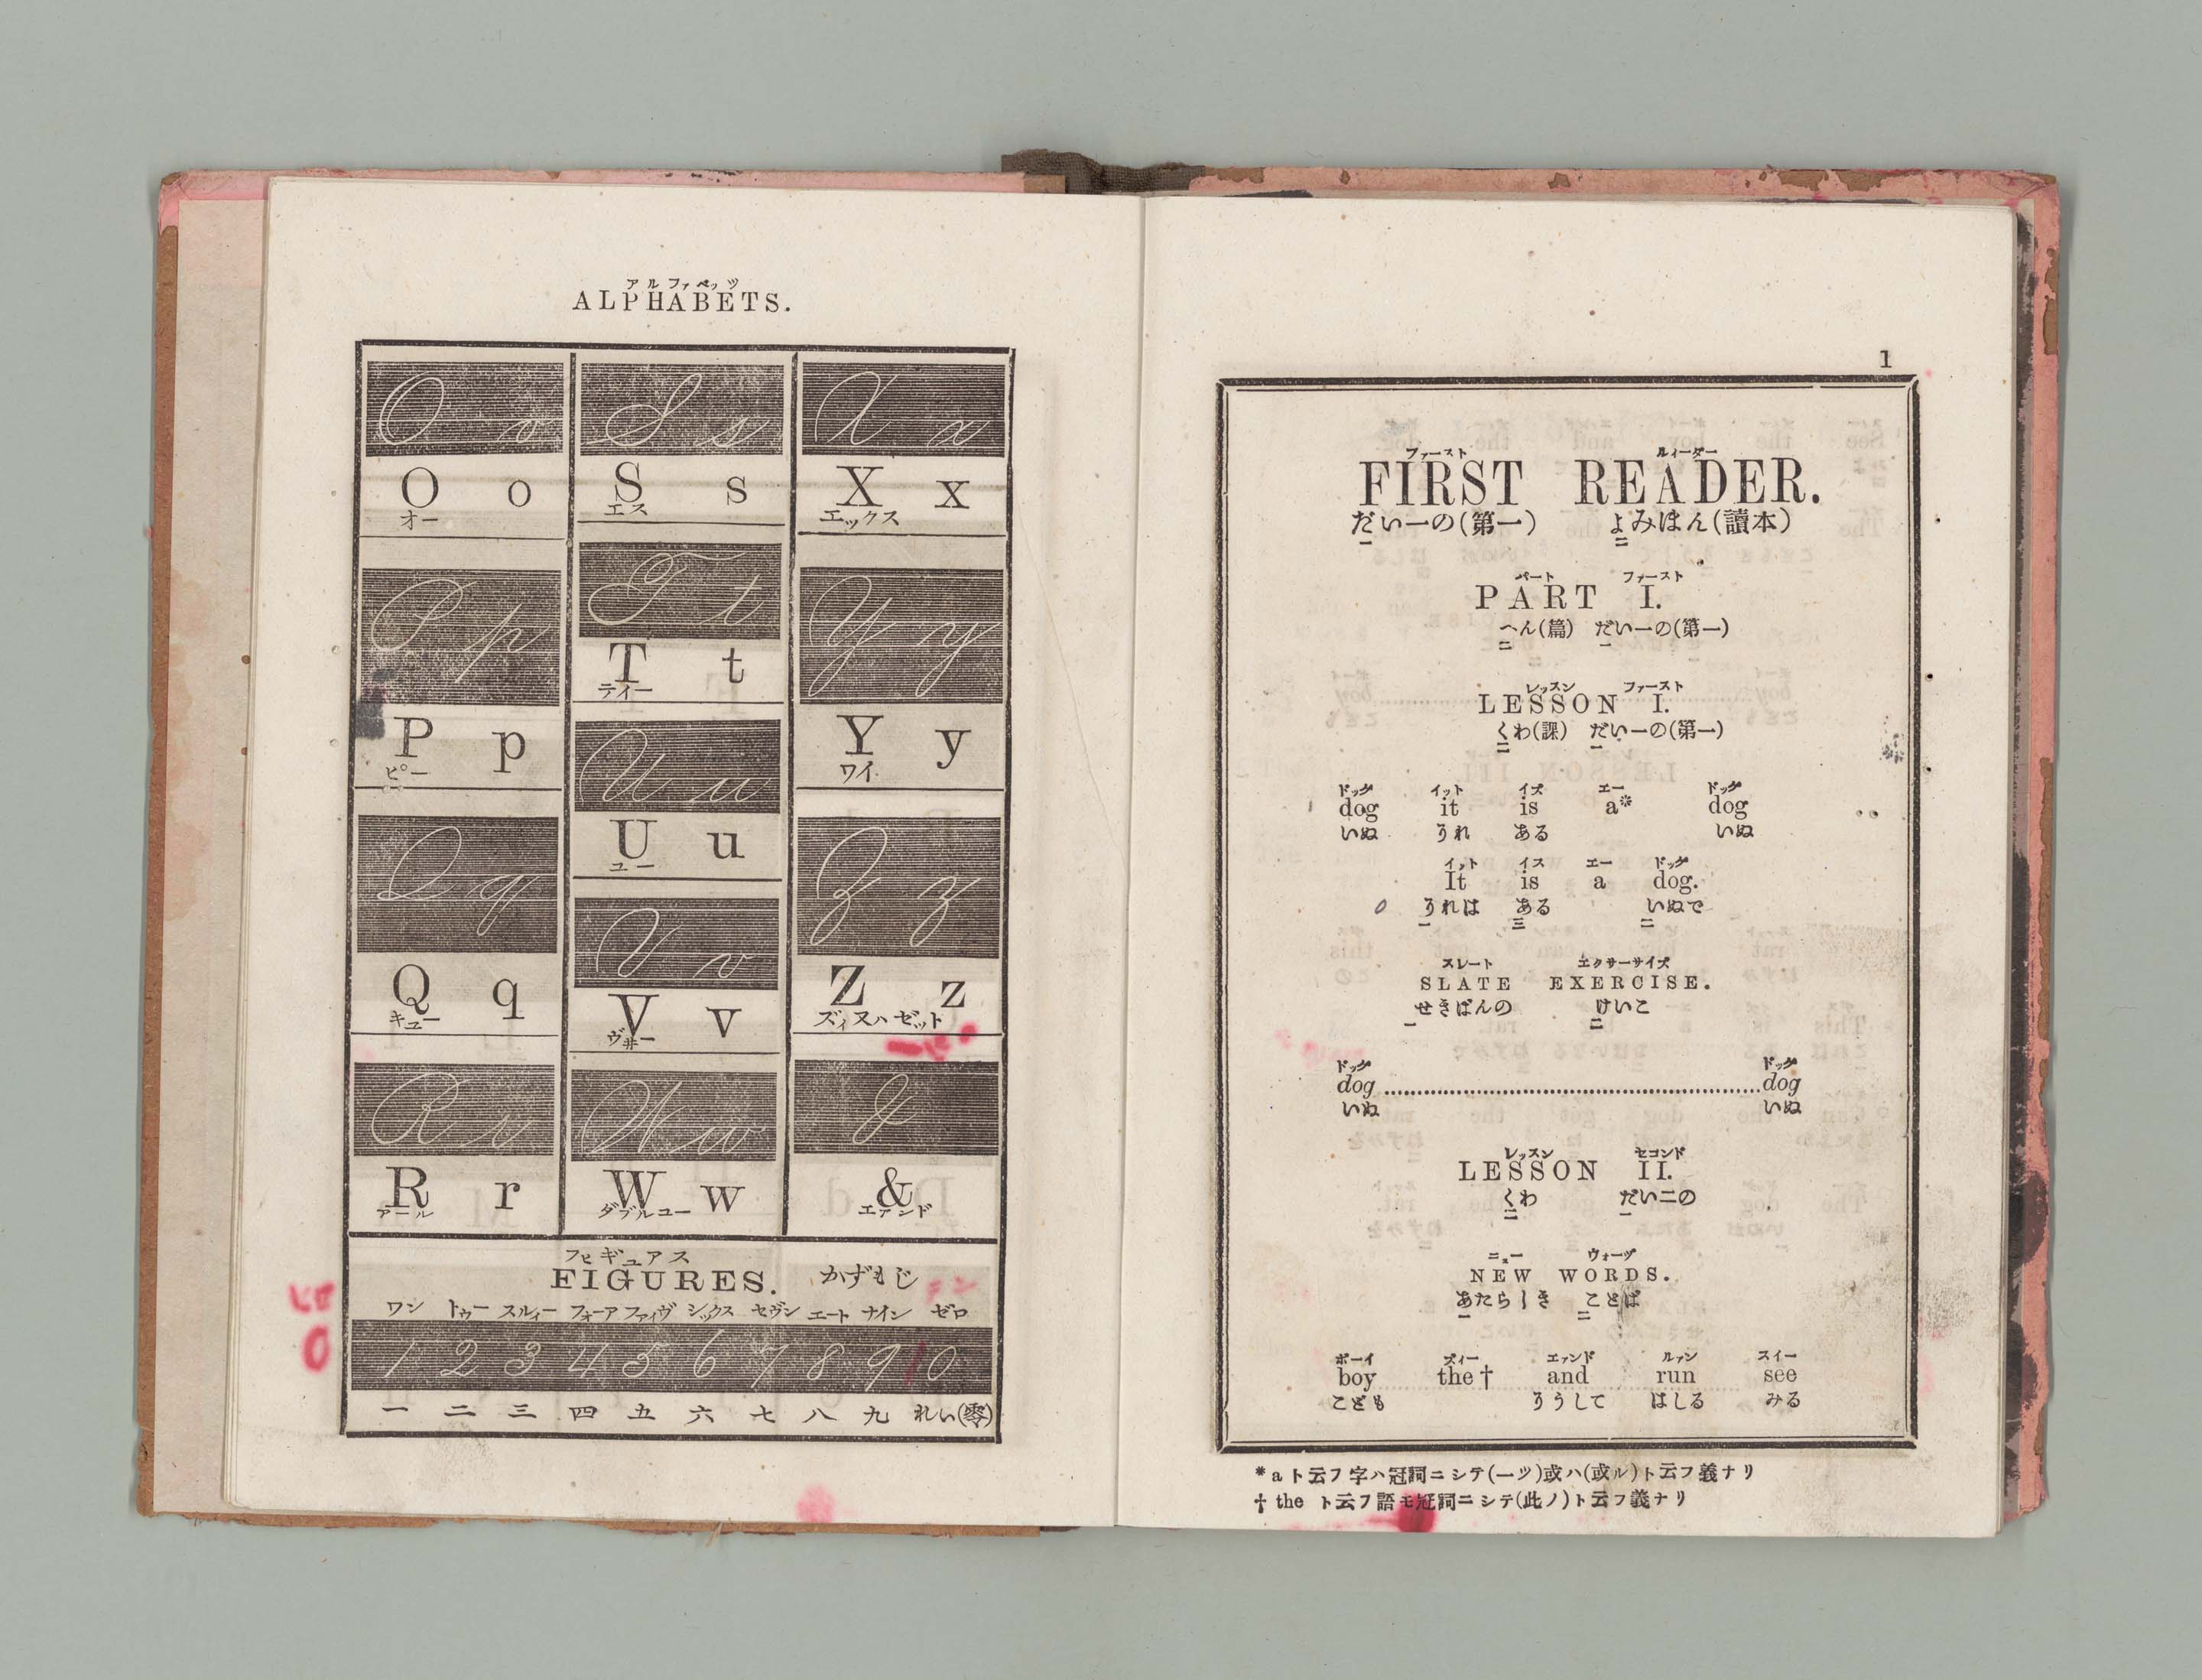 アルファベッツ
ALPHABETS.
O o
O o
オー
P p
P p
ピー
Q q
Q q
キユー
R r
R r
アール
S s
S s
エス
T t
T t
テイー
U u
U u
ユー
V v
V v
ヴ井ー
W w
W w
ダブルユー
X x
X x
エックス
Y y
Y y
ワイ
Z z
Z z
ズィ又ハゼット
&
&
エァンド
フヒギュアス
FIGURES. かずもじ
ワン トゥー スルィー フォーア ファイヴ シックス セヴン エート ナイン ゼロ
1 2 3 4 5 6 7 8 9 0
一 二 三 四 五 六 七 八 九 れい(零)
0
1
ファースト ルィーダー
FIRST READER.
だい一の(第一) よみほん(讀本)
一 二
パート ファースト
PART I.
へん(篇) だい一の(第一)
二 一
レッスン ファースト
LESSON I.
くわ(課) だい一の(第一)
二 一
ドッグ イット イズ エー ドッグ
dog it is a* dog
いぬ うれ ある いぬ
イット イス エー ドッグ
It is a dog.
うれは ある いぬで
一 三 二
スレート エクサーサイズ
SLATE EXERCISE.
せきばんの けいこ
一 二
ドッグ ドッグ
dog dog
いぬ いぬ
レッスン セコンド
LESSON II.
くわ だい二の
二 一
ニュー ウォーヅ
NEW WORDS.
あたらしき ことば
一 二
ボーイ ズィー エァンド ルァン スイー
boy the† and run see
こども ううして はしる みる
* a ト云フ字ハ冠詞ニシテ(一ツ)或ハ(或ル)ト云フ義ナリ
† the ト云フ語モ冠詞ニシテ(此ノ)ト云フ義ナリ